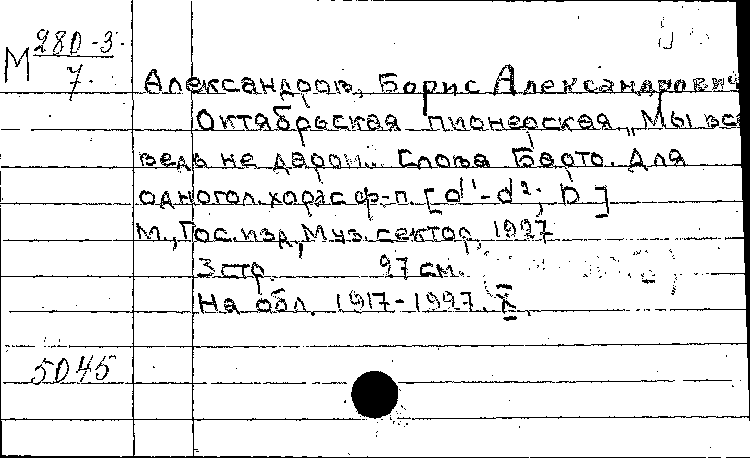 М 280-3
7.
Александров, Борис Александрович
Октябрьская пионерская „Мы все
ведь не даром..." Слова Барто. Для
одногол. хора с ф-п. [d¹-d²; D]
М., Гос. изд., Муз. сектор, 1927
3 стр. 27 см.
На обл. 1917-1927. X
5045